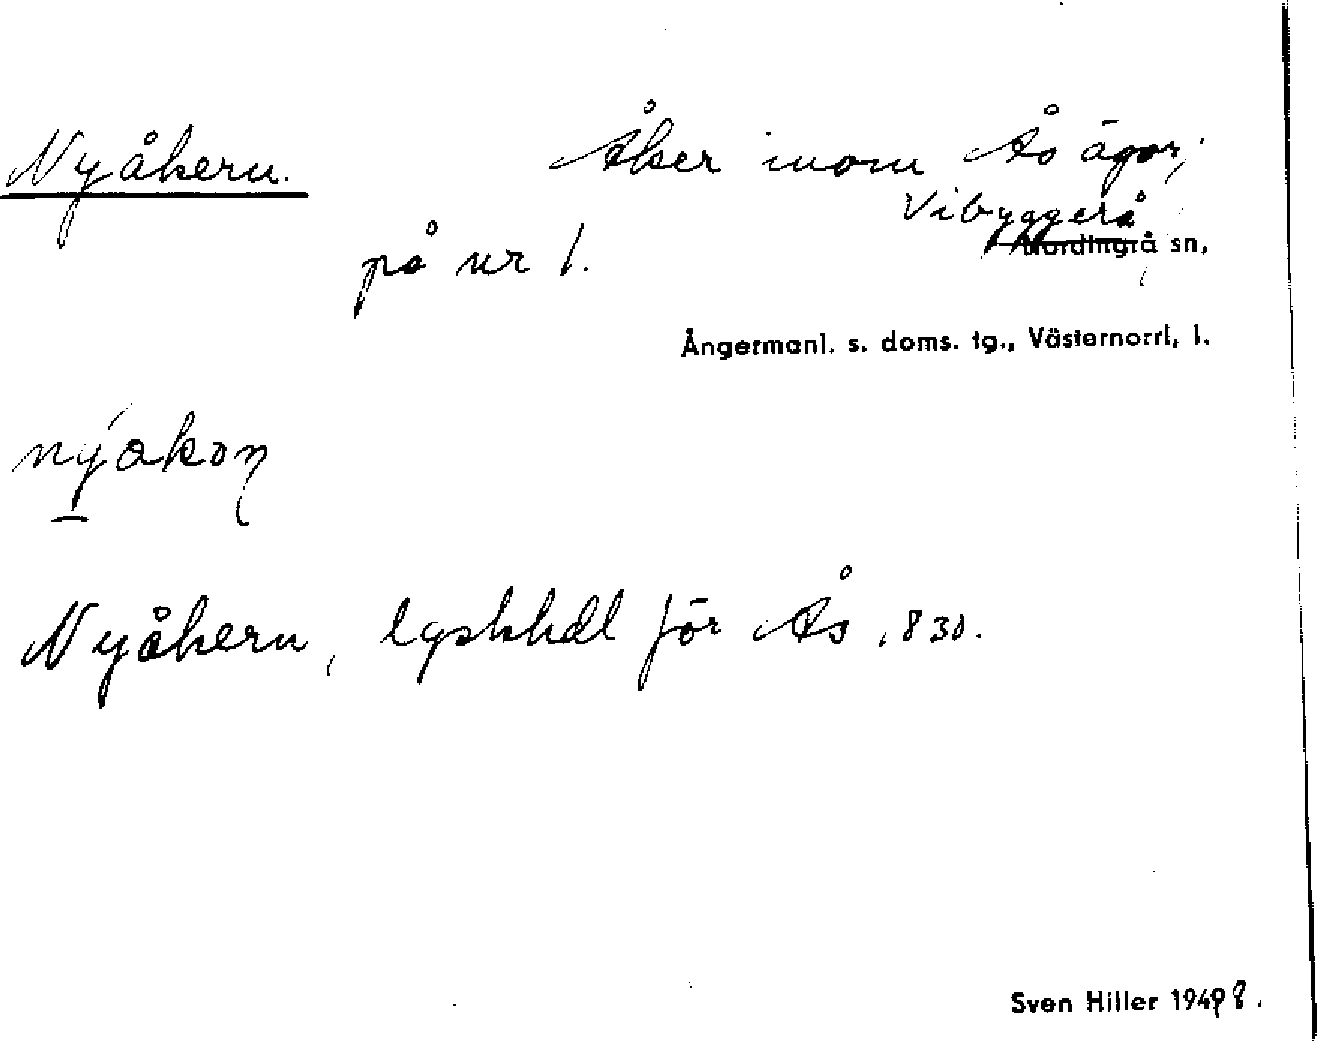 Nyåkern. Åker inom Ås ägor,
Vibyggerå
på nr 1. Nordingrå sn,
Ångermanl. s. doms. tg., Västernorrl. l.
nýakoɳ
Nyåkern, lgskhdl för Ås 1830.
Sven Hiller 1948.